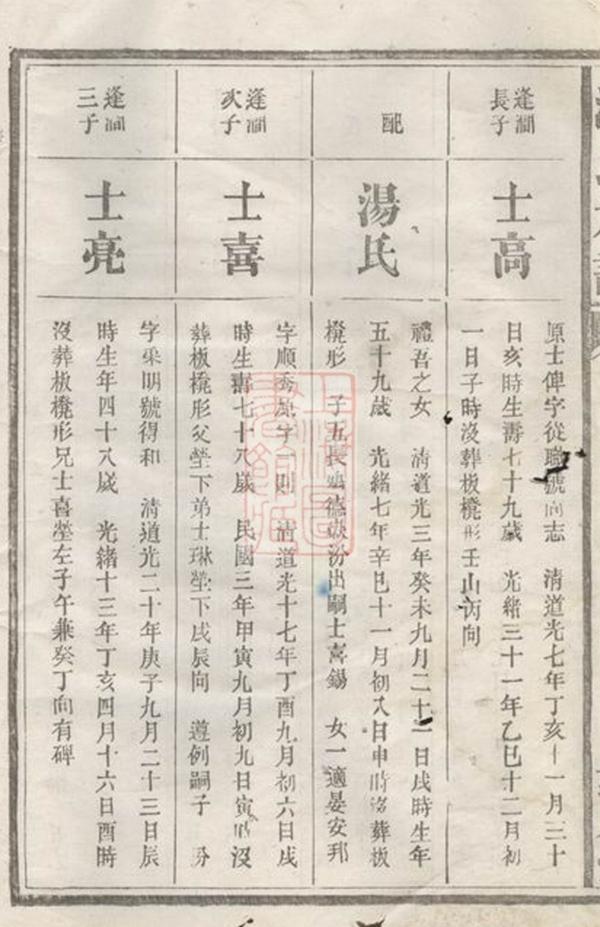 逢澗
長子
士高
原士俾字從職號向志 清道光七年丁亥十一月三十
日亥時生壽七十九歲 光緒三十一年乙巳十二月初
一日子時沒葬板櫈形壬山丙向
配
湯氏
禮吾之女 清道光三年癸未九月二十一日戌時生年
五十九歲 光緒七年辛巳十一月初八日申時沒葬板
櫈形 子五長 德 汾出嗣士喜錫 女一適晏安邦
逢澗
次子
士喜
字順秀 字一則 清道光十七年丁酉九月初六日戌
時生壽七十八歲 民國三年甲寅九月初九日寅時沒
葬板櫈形父塋下弟士琳塋下戌辰向 遵例嗣子 汾
逢澗
三子
士亮
字采明號得和 清道光二十年庚子九月二十三日辰
時生年四十八歲 光緒十三年丁亥四月十六日酉時
沒葬板櫈形兄士喜塋左子午兼癸丁向有碑